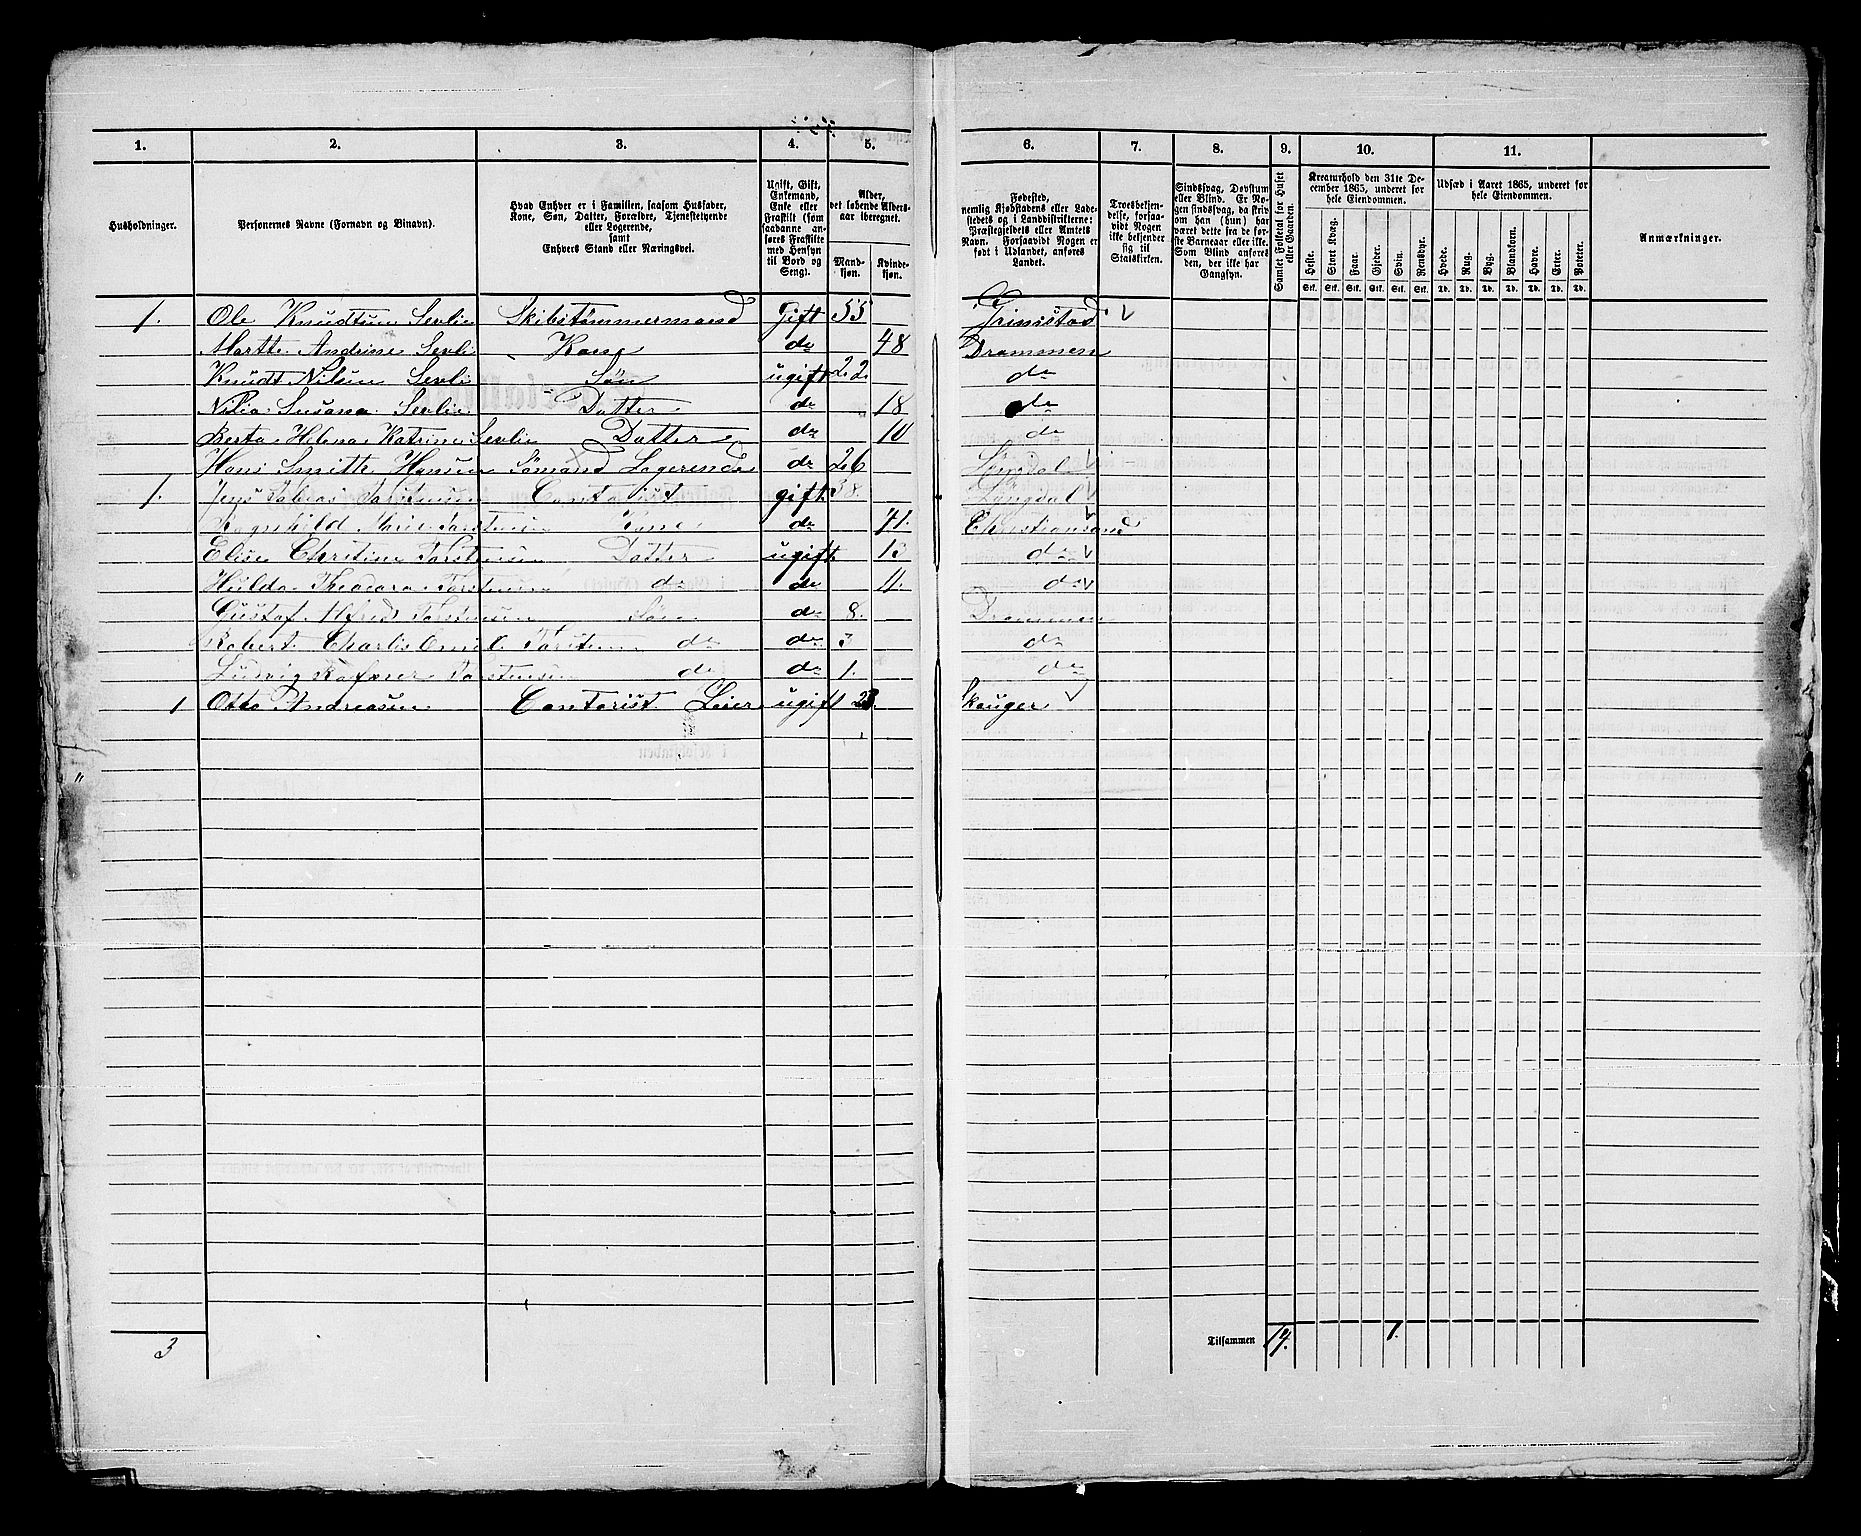 1. 2. 3. 4. 5. 6. 7. 8. 9. 10. 11.
Husholdninger.
Personernes Navne (Fornavn og Binavn).
Hvad Enhver er i Familien, saasom Husfader, Kone, Søn, Datter, Forældre, Tjenestetyende eller Logerende, samt Enhvers Stand eller Næringsvei.
Ugift, Gift, Enkemand, Enke eller Fraskilt (som saadanne anføres Fraskilte med Hensyn til Bord og Seng).
Alder, det løbende Aldersaar iberegnet.
Mandkjøn. Kvindekjøn.
Fødested, nemlig Kjøbstadens eller Ladestedets og i Landdistrikterne: Præstegjeldets eller Amtets Navn. Forsaavidt Nogen er født i Udlandet, anføres Landet.
Troesbekjendelse, forsaavidt Nogen ikke bekjender sig til Statskirken.
Sindssvag, Døvstum eller Blind. Er Nogen sindssvag, da skriv om han (hun) har været dette fra de første Barneaar eller ikke. Som Blind anføres den, der ikke har Gangsyn.
Samlet Folketal for Huset eller Gaarden.
Kreaturhold den 31te December 1865, underet for hele Eiendommen.
Heste. Stort Kvæg. Faar. Gjeder. Svin. Rensdyr.
Stk. Stk. Stk. Stk. Stk. Stk.
Udsæd i Aaret 1865, underet for hele Eiendommen.
Hvede. Rug. Byg. Blandkorn. Havre. Erter. Poteter.
Td. Td. Td. Td. Td. Td. Td.
Anmærkninger.
1. Ole Knudtsen Sevlie Skibstømmermand Gift 55 Grimstad
Marthe Andrine Sevli Kone do 48 Drammen
Knudt Nilsen Sevli Søn ugift 22 do
Nilia Susana Sevlie Datter do 18 do
Berta Helena Katrine Sevlie Datter do 10 do
Hans Smitte Hansen Sømand Logerende do 26
1. Jens Tobias Torstensen Contorist gift 38. Lyngdal
Ragnhild Marie Torstensen Kone do 41. Christiansand
Elise Christine Torstensen Datter ugift 13 do
Hulda Theodora Torstensen do do 11. do
Gustaf Alfred Torstensen Søn do 8. Drammen
Robert Charlis Emil Torstensen do do 3 do
Ludvig Torstensen do do 1. do
1 Otto Andreasen Contorist Leier ugift 23. Skouger
3 Tilsammen 14. 1.